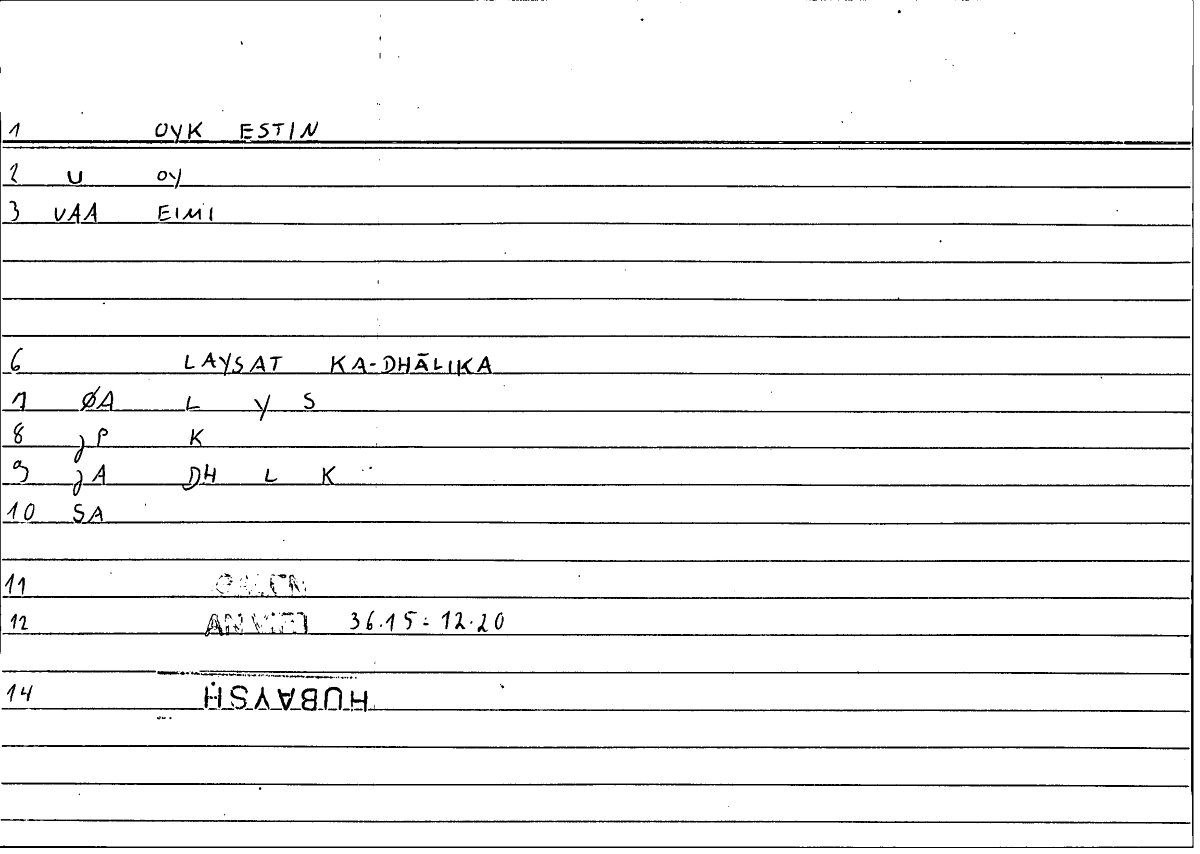 1 OYK ESTIN
2 U OY
3 VAA EIMI
6 LAYSAT KA-DHĀLIKA
7 ØA L Y S
8 JP K
9 JA DH L K
10 SA
11 GALEN
12 AN VIRT 36.15 = 12.20
14 ḤUBAYSH